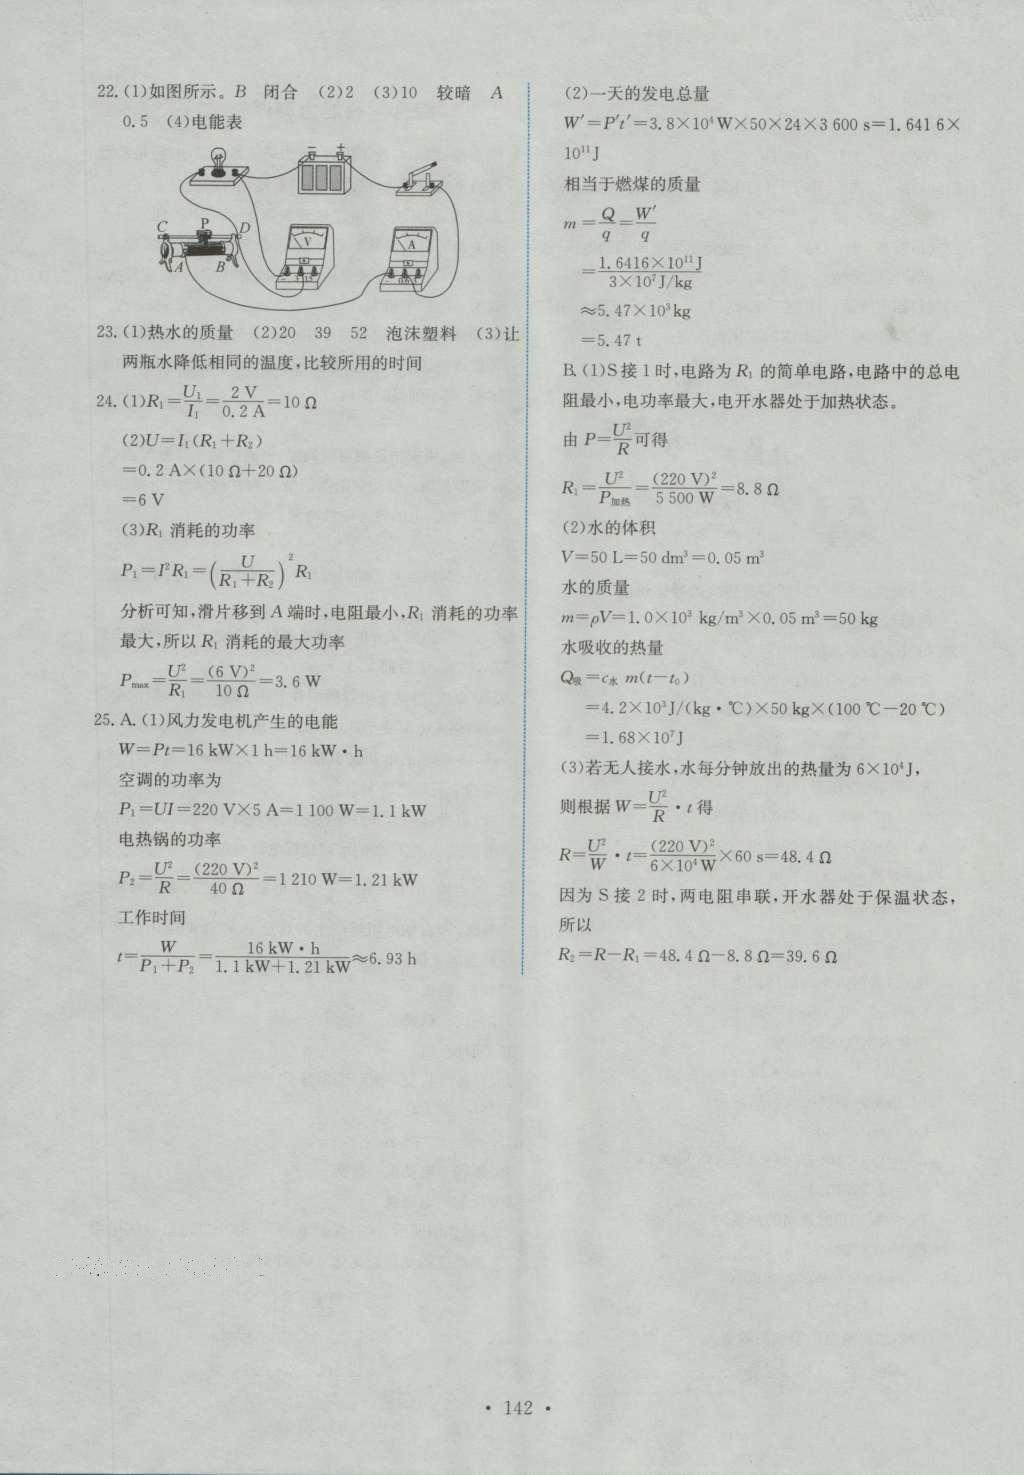 22. (1)如图所示。B 闭合 (2)2 (3)10 较暗 A
0.5 (4)电能表
− +
C P D
A B
V
A
23. (1)热水的质量 (2)20 39 52 泡沫塑料 (3)让
两瓶水降低相同的温度,比较所用的时间
24. (1)R₁=U₁/I₁=2 V/0.2 A=10 Ω
(2)U=I₁(R₁+R₂)
=0.2 A×(10 Ω+20 Ω)
=6 V
(3)R₁ 消耗的功率
P₁=I²R₁=(U/(R₁+R₂))²R₁
分析可知,滑片移到 A 端时,电阻最小,R₁ 消耗的功率
最大,所以 R₁ 消耗的最大功率
Pmax=U²/R₁=(6 V)²/10 Ω=3.6 W
25. A. (1)风力发电机产生的电能
W=Pt=16 kW×1 h=16 kW·h
空调的功率为
P₁=UI=220 V×5 A=1 100 W=1.1 kW
电热锅的功率
P₂=U²/R=(220 V)²/40 Ω=1 210 W=1.21 kW
工作时间
t=W/(P₁+P₂)=16 kW·h/(1.1 kW+1.21 kW)≈6.93 h
(2)一天的发电总量
W′=P′t′=3.8×10⁴ W×50×24×3 600 s=1.641 6×
10¹¹ J
相当于燃煤的质量
m=Q/q=W′/q
=1.6416×10¹¹ J/3×10⁷ J/kg
≈5.47×10³ kg
=5.47 t
B. (1)S 接 1 时,电路为 R₁ 的简单电路,电路中的总电
阻最小,电功率最大,电开水器处于加热状态。
由 P=U²/R可得
R₁=U²/P加热=(220 V)²/5 500 W=8.8 Ω
(2)水的体积
V=50 L=50 dm³=0.05 m³
水的质量
m=ρV=1.0×10³ kg/m³×0.05 m³=50 kg
水吸收的热量
Q吸=c水 m(t−t₀)
=4.2×10³ J/(kg·℃)×50 kg×(100 ℃−20 ℃)
=1.68×10⁷ J
(3)若无人接水,水每分钟放出的热量为 6×10⁴ J,
则根据 W=U²/R·t 得
R=U²/W·t=(220 V)²/6×10⁴ W×60 s=48.4 Ω
因为 S 接 2 时,两电阻串联,开水器处于保温状态,
所以
R₂=R−R₁=48.4 Ω−8.8 Ω=39.6 Ω
· 142 ·